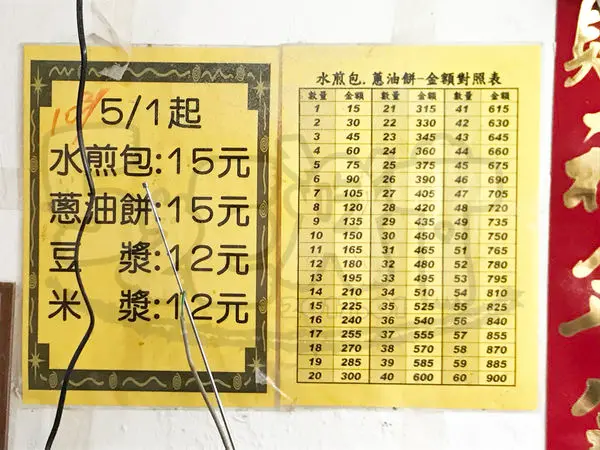 5/1起
水煎包:15元
蔥油餅:15元
豆 漿:12元
米 漿:12元
水煎包.蔥油餅-金額對照表
數量 金額 數量 金額 數量 金額
1 15 21 315 41 615
2 30 22 330 42 630
3 45 23 345 43 645
4 60 24 360 44 660
5 75 25 375 45 675
6 90 26 390 46 690
7 105 27 405 47 705
8 120 28 420 48 720
9 135 29 435 49 735
10 150 30 450 50 750
11 165 31 465 51 765
12 180 32 480 52 780
13 195 33 495 53 795
14 210 34 510 54 810
15 225 35 525 55 825
16 240 36 540 56 840
17 255 37 555 57 855
18 270 38 570 58 870
19 285 39 585 59 885
20 300 40 600 60 900